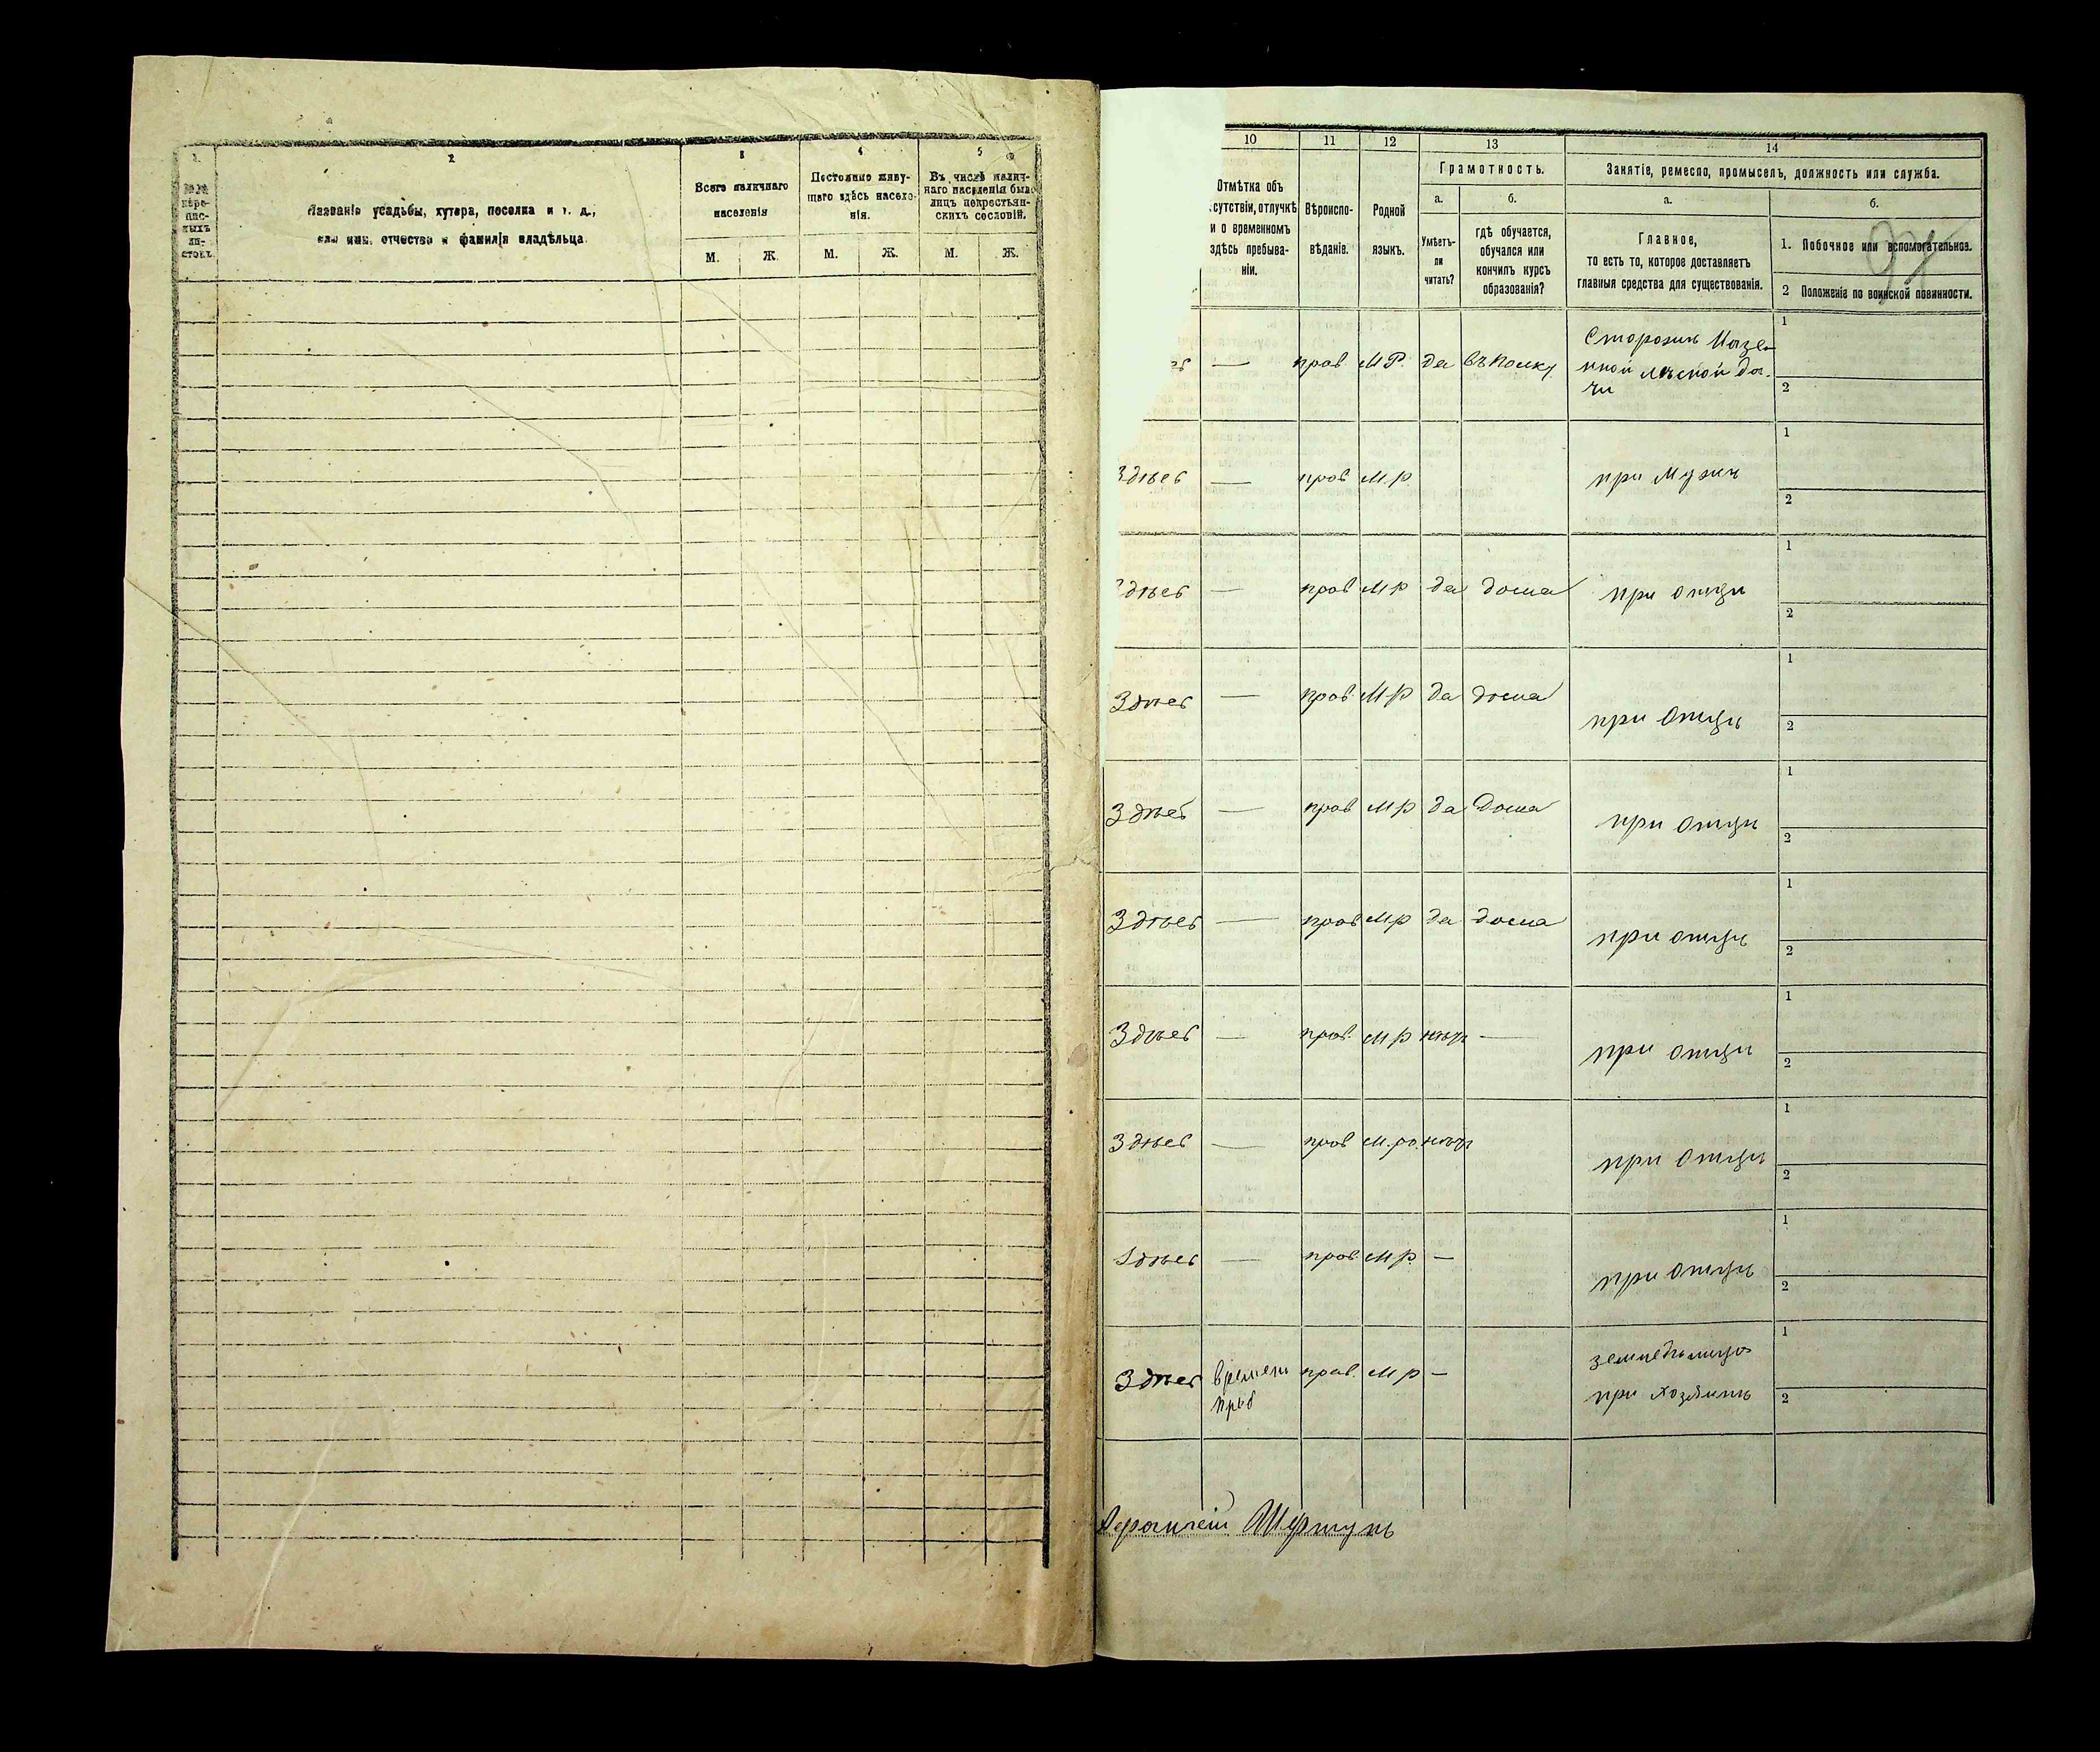 1. 2 3 4 5
Названіе усадьбы, хутора, поселка и т. д.,
или имя, отчество и фамилія владѣльца.
Всего наличнаго
населенія
Постоянно живу-
щаго здѣсь населе-
нія.
Въ числѣ налич-
наго населенія было
лицъ некрестьян-
скихъ сословій.
М. Ж. М. Ж. М. Ж.
10 11 12 13 14
Отмѣтка объ
сутствіи, отлучкѣ
и о временномъ
здѣсь пребыва-
ніи.
Вѣроиспо-
вѣданіе.
Родной
языкъ.
Грамотность.
а. б.
Умѣетъ-
ли
читать?
гдѣ обучается,
обучался или
кончилъ курсъ
образованія?
Занятіе, ремесло, промыселъ, должность или служба.
а. б.
Главное,
то есть то, которое доставляетъ
главныя средства для существованія.
1. Побочное или вспомогательное.
2 Положеніе по воинской повинности.
— прав. МР. да въ полку
Сторожъ Казе-
нной лѣсной да-
чи
1
2
Здѣсь — прав МР при мужѣ
1
2
здѣсь — прав МР да дома при отцѣ
1
2
Здѣсь — прав. МР да дома при отцѣ
1
2
Здѣсь — прав МР да Дома при отцѣ
1
2
Здѣсь — прав МР да дома при отцѣ
1
2
Здѣсь — прав. МР нѣтъ — при отцѣ
1
2
Здѣсь — прав М.Р. нѣтъ при отцѣ
1
2
Здѣсь — прав. МР. — при отцѣ
1
2
Здѣсь времен прав. МР —
преб
при хозяинѣ
1
2